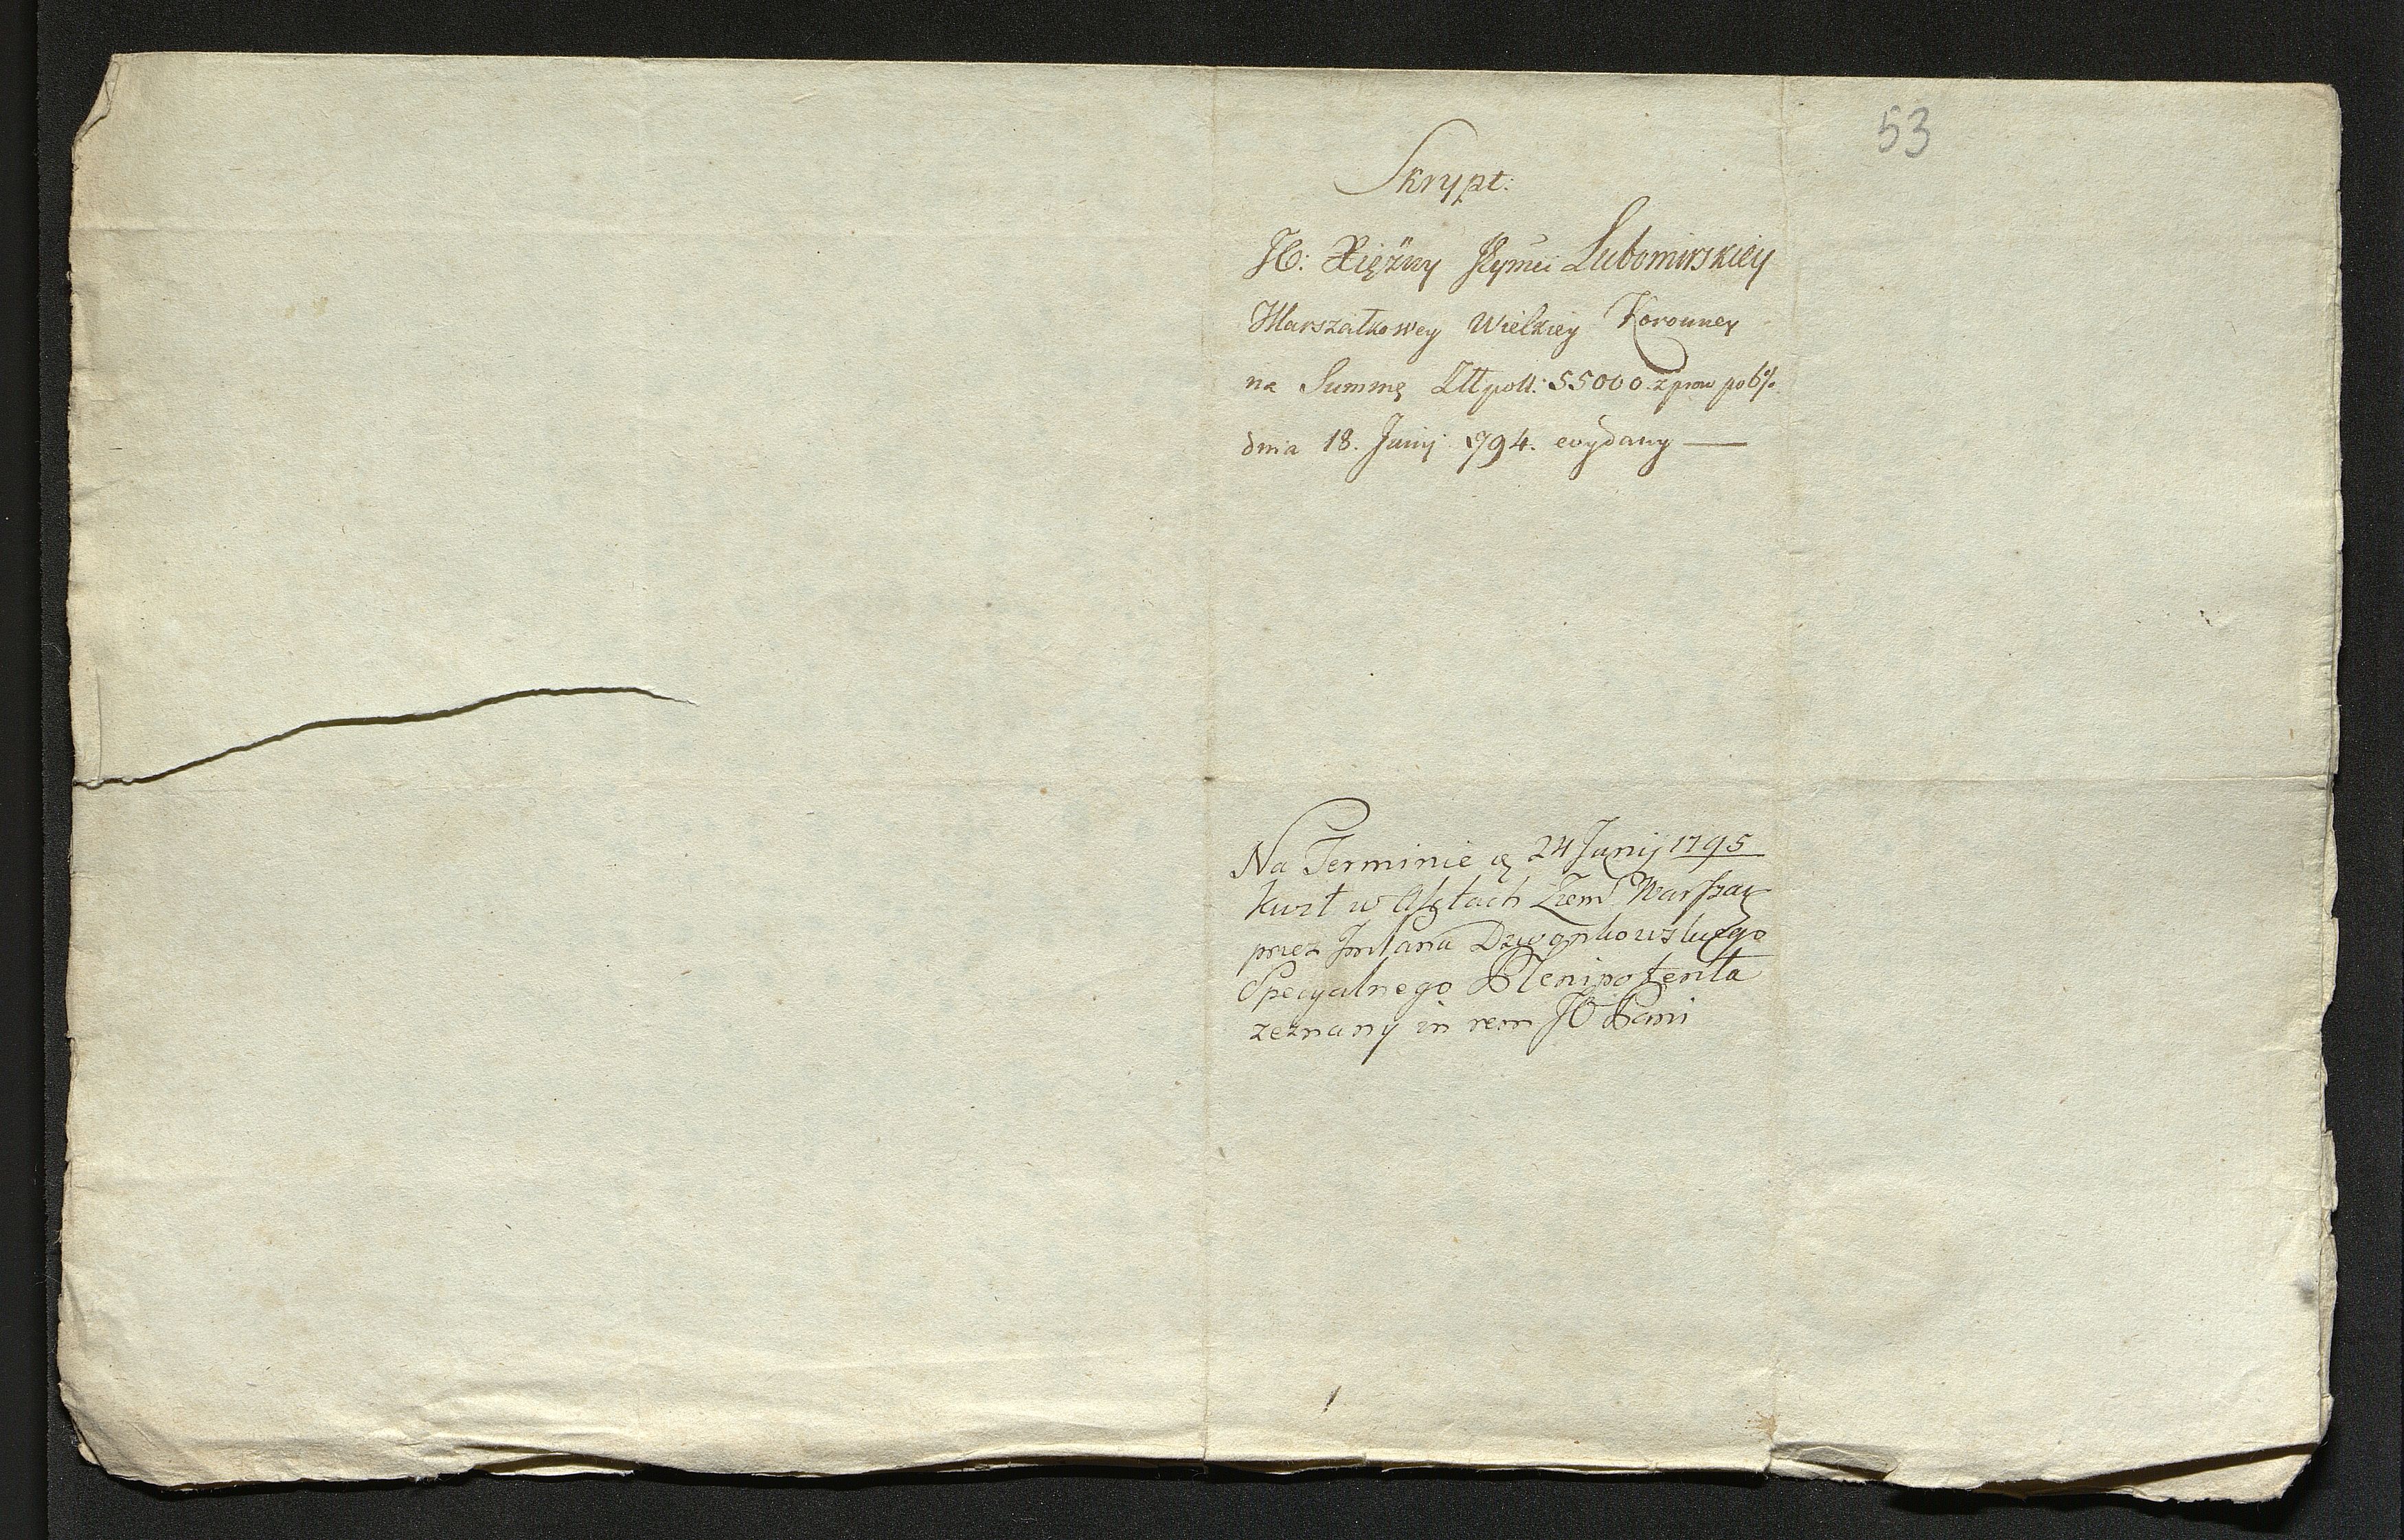 53
Skrypt:
JO: Xiężny Jeymci Lubomirskiey
Marszałkowey Wielkiey Koronney
na Summę Złł poll: 55000 z prow po 6%
dnia 18. Junij 794. wydany —
Na Terminie 24 Junij 1795
kwit w Aktach Ziem Warszaw
przez JmPana Dzwonkowskiego
Specyalnego Plenipotenta
zeznany in rem JO Pani